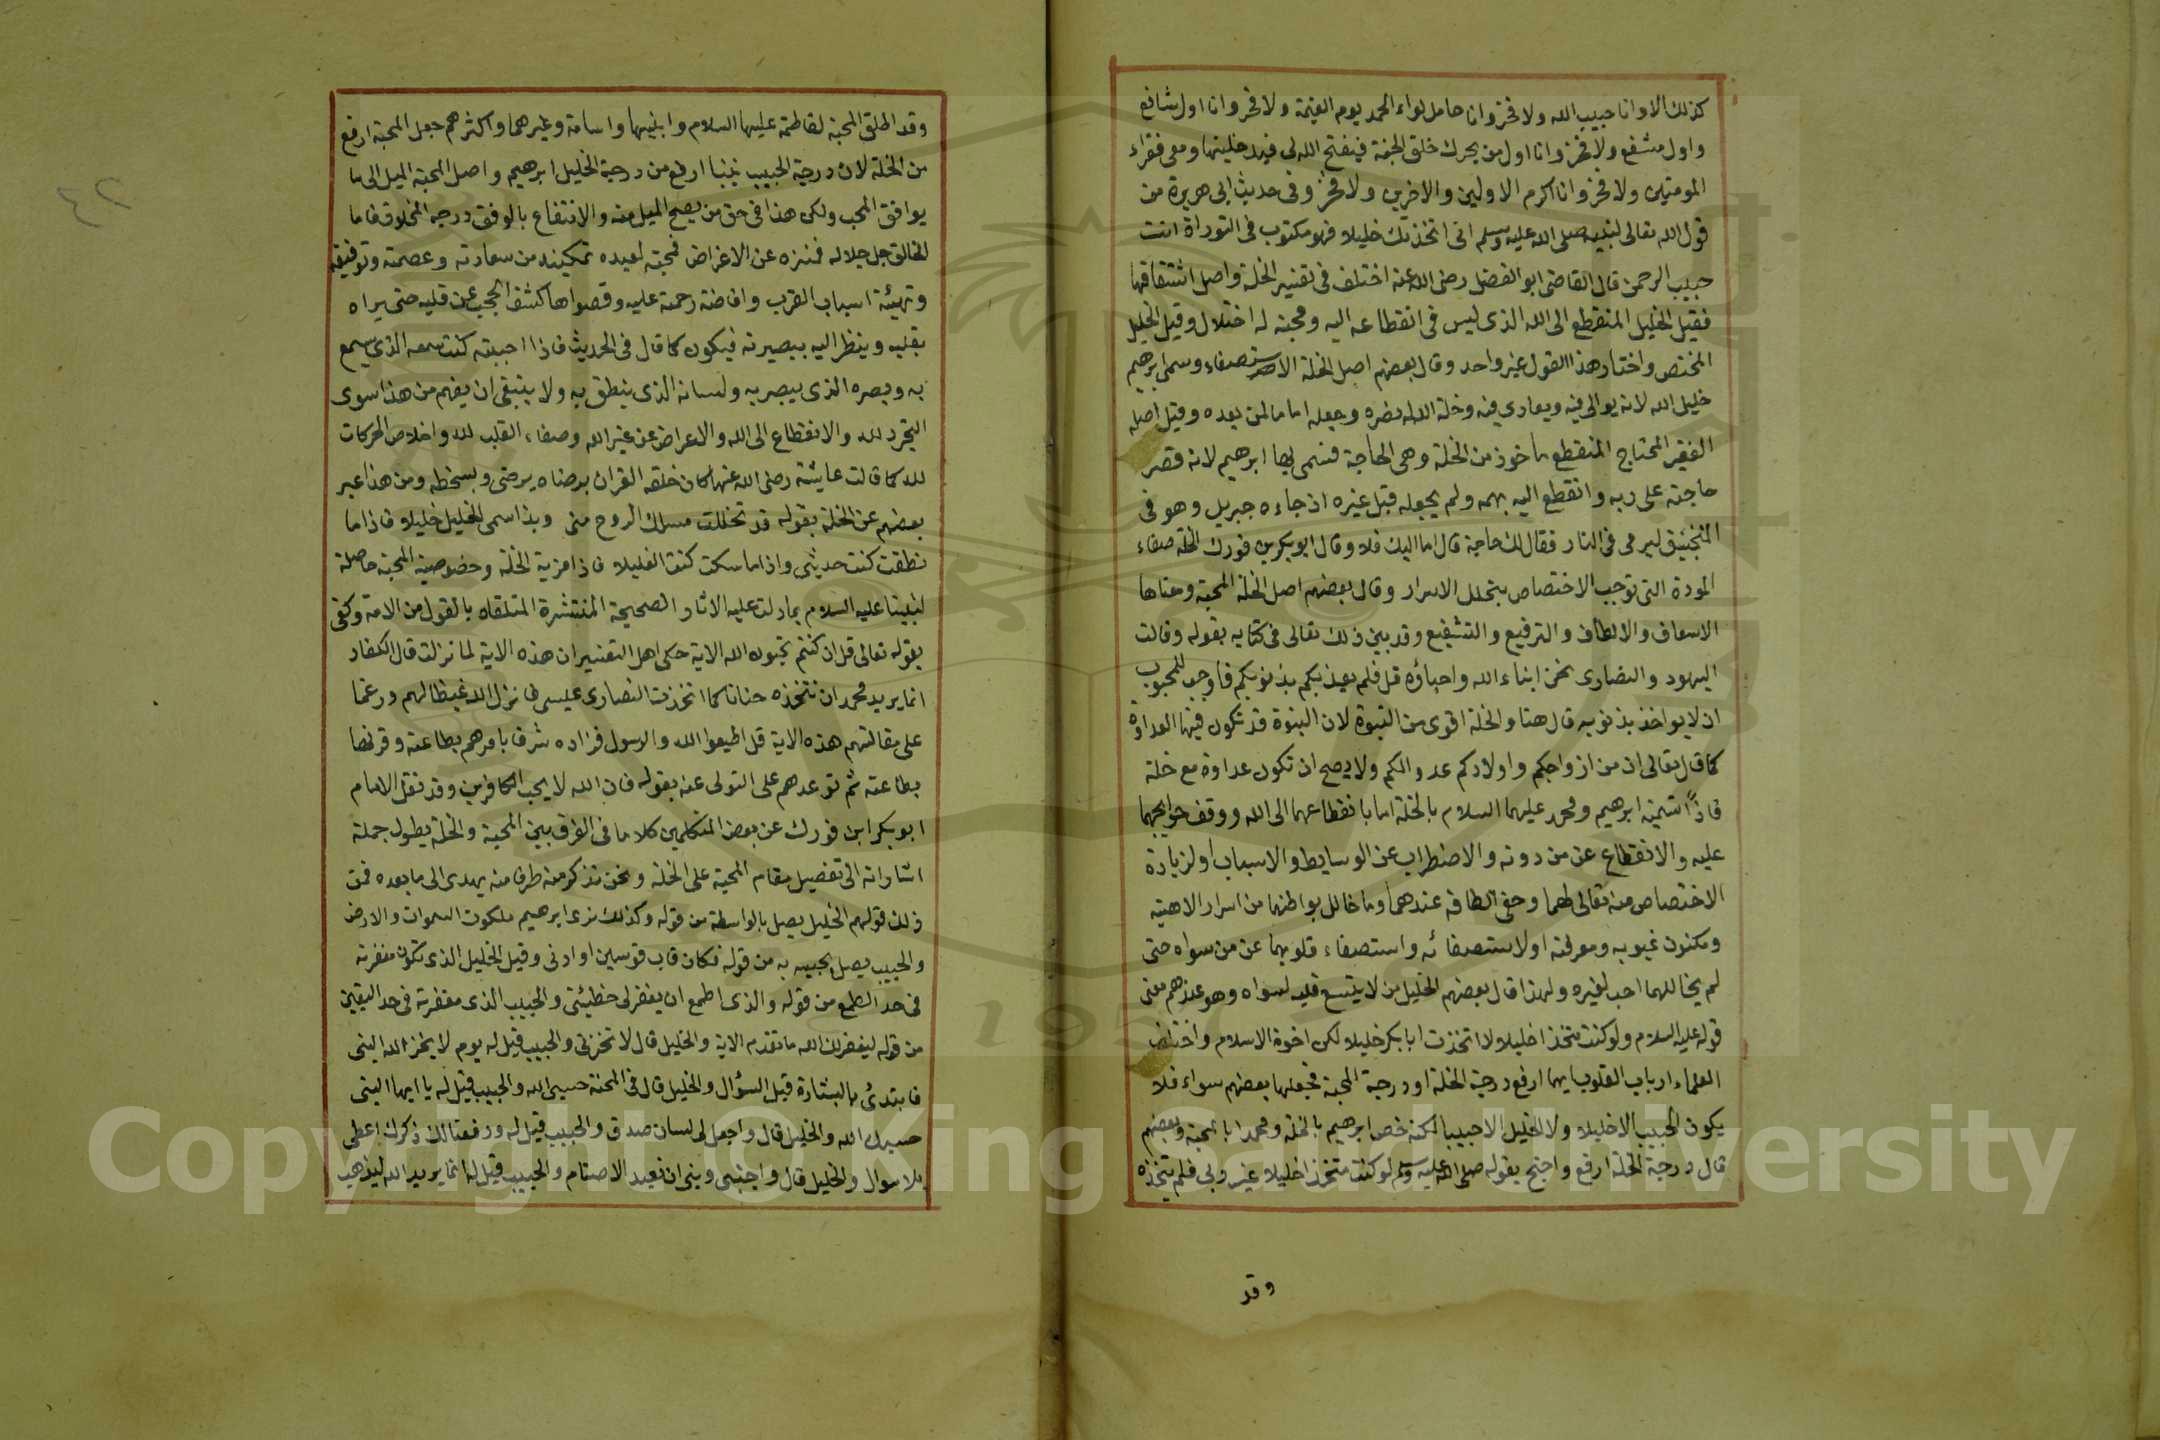 كذلك الا وانا حبيب الله ولا فخر وانا حامل لواء الحمد يوم القيمة ولا فخر وانا اول شافع
واول مشفع ولا فخر وانا اول من يحرك حلق الجنة فيفتح الله لي فيدخلنيها ومعي فقراء
المومنين ولا فخر وانا اكرم الاولين والاخرين ولا فخر وفي حديث ابي هريرة من
قول الله تعالى لنبيه صلى الله عليه وسلم اني اتخذتك خليلا فهو مكتوب في التوراة انت
حبيب الرحمن قال القاضي ابو الفضل رضي الله عنه اختلف في تفسير الخلة واصل اشتقاقها
فقيل الخليل المنقطع الى الله الذي ليس في انقطاعه اليه ومحبته له اختلال وقيل الخليل
المختص واختار هذا القول غير واحد وقال بعضهم اصل الخلة الاستصفاء وسمي ابرهيم
خليل الله لانه يوالي فيه ويعادي فيه وخلة الله له نصره وجعله اماما لمن بعده وقيل اصله
الفقير المحتاج المنقطع ماخوذ من الخلة وهي الحاجة فسمي بها ابرهيم لانه قصر
حاجته على ربه وانقطع اليه بهمه ولم يجعله قبل غيره اذ جاءه جبريل وهو في
المنجنيق ليرمى في النار فقال لك حاجة قال اما اليك فلا وقال ابو بكر بن فورك الخلة صفاء
المودة التي توجب الاختصاص بتخلل الاسرار وقال بعضهم اصل الخلة المحبة ومعناها
الاسعاف والالطاف والترفيع والتشفيع وقد بين ذلك تعالى في كتابه بقوله وقالت
اليهود والنصارى نحن ابناء الله واحباؤه قل فلم يعذبكم بذنوبكم فاوجب للمحبوب
ان لا يواخذ بذنوبه قال هنا والخلة اقوى من البنوة لان البنوة قد تكون فيها العداوة
كما قال تعالى ان من ازواجكم واولادكم عدوا لكم ولا يصح ان تكون عداوة مع خلة
فاذًا تسمية ابرهيم ومحمد عليهما السلام بالخلة اما بانقطاعهما الى الله ووقف حوايجهما
عليه والانقطاع عن من دونه والاضطراب عن الوسايط والاسباب او لزيادة
الاختصاص منه تعالى لهما وخفي الطافه عندهما وما خالل بواطنهما من اسرار الاهيته
ومكنون غيوبه ومعرفته او لاستصفائه واستصفاء قلوبهما عن من سواه حتى
لم يخاللهما حب لغيره ولهذا قال بعضهم الخليل من لا يتسع قلبه لسواه وهو عندهم معنى
قوله عليه السلام ولو كنت متخذا خليلا لاتخذت ابا بكر خليلا لكن اخوة الاسلام واختلف
العلماء ارباب القلوب ايهما ارفع درجة الخلة او درجة المحبة فجعلهما بعضهم سواء فلا
يكون الحبيب الا خليلا ولا الخليل الا حبيبا لكنه خص ابرهيم بالخلة ومحمدا بالمحبة وبعضهم
قال درجة الخلة ارفع واحتج بقوله صلى الله عليه وسلم لو كنت متخذا خليلا غير ربي فلم يتخذه
وقد
٤٢
وقد اطلق المحبة لفاطمة عليها السلام وابنيها واسامة وغيرهما واكثرهم جعل المحبة ارفع
من الخلة لان درجة الحبيب نبينا ارفع من درجة الخليل ابرهيم واصل المحبة الميل الى ما
يوافق المحب ولكن هذا في حق من يصح الميل منه والانتفاع بالوفق درجة المخلوق فاما
الخالق جل جلاله فمنزه عن الاغراض فمحبته لعبده تمكينه من سعادته وعصمته وتوفيقه
وتهيئة اسباب القرب وافاضة رحمته عليه وقصواها كشف الحجب عن قلبه حتى يراه
بقلبه وينظر اليه ببصيرته فيكون كما قال في الحديث فاذا احببته كنت سمعه الذي يسمع
به وبصره الذي يبصر به ولسانه الذي ينطق به ولا ينبغي ان يفهم من هذا سوى
التجرد لله والانقطاع الى الله والاعراض عن غير الله وصفاء القلب لله واخلاص الحركات
لله كما قالت عايشة رضي الله عنها كان خلقه القران برضاه يرضى وبسخطه ومن هذا عبر
بعضهم عن الخلة بقوله قد تخللت مسلك الروح مني وبذا سمي الخليل خليلا فاذا ما
نطقت كنت حديثي واذا ما سكت كنت الغليلا فاذا مزية الخلة وخصوصية المحبة حاصلة
لنبينا عليه السلام بما دلت عليه الاثار الصحيحة المنتشرة المتلقاه بالقول من الامة وكفى
بقوله تعالى قل ان كنتم تحبون الله الاية حكى اهل التفسير ان هذه الاية لما نزلت قال الكفار
انما يريد محمد ان نتخذه حنانا كما اتخذت النصارى عيسى فانزل الله غيظا لهم ورغما
على مقالتهم هذه الاية قل اطيعوا الله والرسول فزاده شرفا بامرهم بطاعته وقرنها
بطاعته ثم توعدهم على التولي عنه بقوله فان الله لا يحب الكافرين وقد نقل الامام
ابو بكر ابن فورك عن بعض المتكلمين كلاما في الفرق بين المحبة والخلة يطول جملة
اشاراته الى تفضيل مقام المحبة على الخلة ونحن نذكر منه طرفا منه يهدي الى ما بعده فمن
ذلك قولهم الخليل يصل بالواسطة من قوله وكذلك نري ابرهيم ملكوت السموات والارض
والحبيب يصل لحبيبه به من قوله فكان قاب قوسين او ادنى وقيل الخليل الذي تكون مغفرته
في حد الطمع من قوله والذي اطمع ان يغفر لي خطيئتي والحبيب الذي مغفرته في حد اليقين
من قوله ليغفر لك الله ما تقدم الاية والخليل قال لا تخزني والحبيب قيل له يوم لا يخز الله النبي
فابتدئ بالبشارة قبل السؤال والخليل قال في المحنة حسبي الله والحبيب قيل له يا ايها النبي
حسبك الله والخليل قال واجعل لي لسان صدق والحبيب قيل له ورفعنا لك ذكرك اعطي
بلا سوال والخليل قال واجنبني وبني ان نعبد الاصنام والحبيب قيل له انما يريد الله ليذهب
Copyright © King Saud University
1957